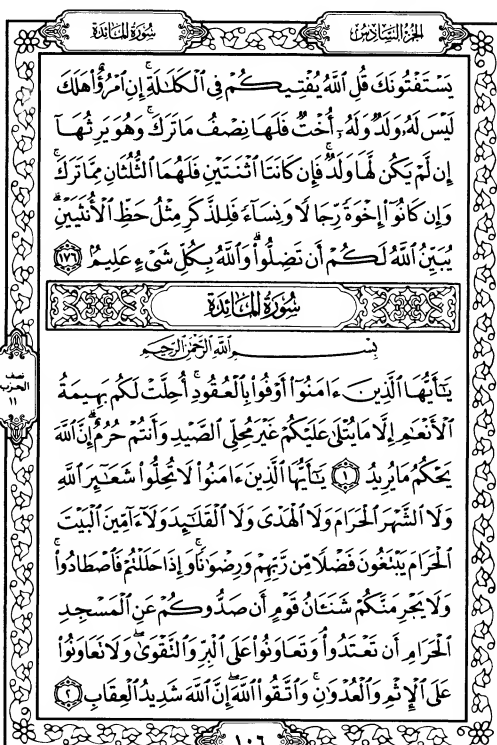 سُورَةُ المَائدة
الجُزءُ السَّادِسُ
يَسۡتَفۡتُونَكَ قُلِ ٱللَّهُ يُفۡتِيكُمۡ فِي ٱلۡكَلَٰلَةِۚ إِنِ ٱمۡرُؤٌاْ هَلَكَ
لَيۡسَ لَهُۥ وَلَدٞ وَلَهُۥٓ أُخۡتٞ فَلَهَا نِصۡفُ مَا تَرَكَۚ وَهُوَ يَرِثُهَآ
إِن لَّمۡ يَكُن لَّهَا وَلَدٞۚ فَإِن كَانَتَا ٱثۡنَتَيۡنِ فَلَهُمَا ٱلثُّلُثَانِ مِمَّا تَرَكَۚ
وَإِن كَانُوٓاْ إِخۡوَةٗ رِّجَالٗا وَنِسَآءٗ فَلِلذَّكَرِ مِثۡلُ حَظِّ ٱلۡأُنثَيَيۡنِۗ
يُبَيِّنُ ٱللَّهُ لَكُمۡ أَن تَضِلُّواْۗ وَٱللَّهُ بِكُلِّ شَيۡءٍ عَلِيمُۢ ١٧٦
سُورَةُ المَائدة
بِسۡمِ ٱللَّهِ ٱلرَّحۡمَٰنِ ٱلرَّحِيمِ
يَٰٓأَيُّهَا ٱلَّذِينَ ءَامَنُوٓاْ أَوۡفُواْ بِٱلۡعُقُودِۚ أُحِلَّتۡ لَكُم بَهِيمَةُ
ٱلۡأَنۡعَٰمِ إِلَّا مَا يُتۡلَىٰ عَلَيۡكُمۡ غَيۡرَ مُحِلِّي ٱلصَّيۡدِ وَأَنتُمۡ حُرُمٌۗ إِنَّ ٱللَّهَ
يَحۡكُمُ مَا يُرِيدُ ١ يَٰٓأَيُّهَا ٱلَّذِينَ ءَامَنُواْ لَا تُحِلُّواْ شَعَٰٓئِرَ ٱللَّهِ
وَلَا ٱلشَّهۡرَ ٱلۡحَرَامَ وَلَا ٱلۡهَدۡيَ وَلَا ٱلۡقَلَٰٓئِدَ وَلَآ ءَآمِّينَ ٱلۡبَيۡتَ
ٱلۡحَرَامَ يَبۡتَغُونَ فَضۡلٗا مِّن رَّبِّهِمۡ وَرِضۡوَٰنٗاۚ وَإِذَا حَلَلۡتُمۡ فَٱصۡطَادُواْۚ
وَلَا يَجۡرِمَنَّكُمۡ شَنَـَٔانُ قَوۡمٍ أَن صَدُّوكُمۡ عَنِ ٱلۡمَسۡجِدِ
ٱلۡحَرَامِ أَن تَعۡتَدُواْۘ وَتَعَاوَنُواْ عَلَى ٱلۡبِرِّ وَٱلتَّقۡوَىٰۖ وَلَا تَعَاوَنُواْ
عَلَى ٱلۡإِثۡمِ وَٱلۡعُدۡوَٰنِۚ وَٱتَّقُواْ ٱللَّهَۖ إِنَّ ٱللَّهَ شَدِيدُ ٱلۡعِقَابِ ٢
نصف
الحزب
١١
١٠٦